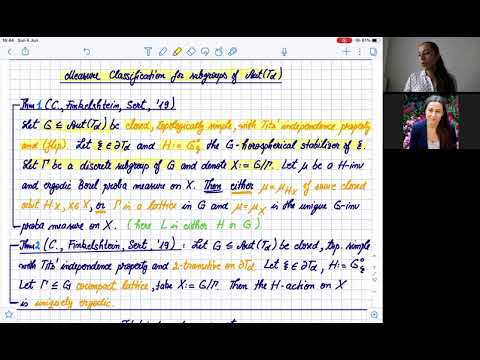 16:44 Sun 6 Jun
91%
Measure Classification for subgroups of Aut(Td)
Thm 1 (C., Finkelshtein, Sert, '19)
Let G ≤ Aut(Td) be closed, topologically simple, with Tits' independence property
and (flip). Let ξ ∈ ∂Td and H := G⁰ξ the G-horospherical stabilizer of ξ.
Let Γ be a discrete subgroup of G and denote X := G/Γ. Let μ be a H-inv
and ergodic Borel proba measure on X. Then either μ = μHx of some closed
orbit Hx, x∈X, or Γ is a lattice in G and μ = μX is the unique G-inv
proba measure on X. (here L is either H or G)
Thm 2 (C., Finkelshtein, Sert, '19) : Let G ≤ Aut(Td) be closed, top. simple
with Tits' independence property and 2-transitive on ∂Td. Let ξ ∈ ∂Td, H := G⁰ξ
Let Γ ≤ G cocompact lattice, take X := G/Γ. Then the H-action on X
is uniquely ergodic.